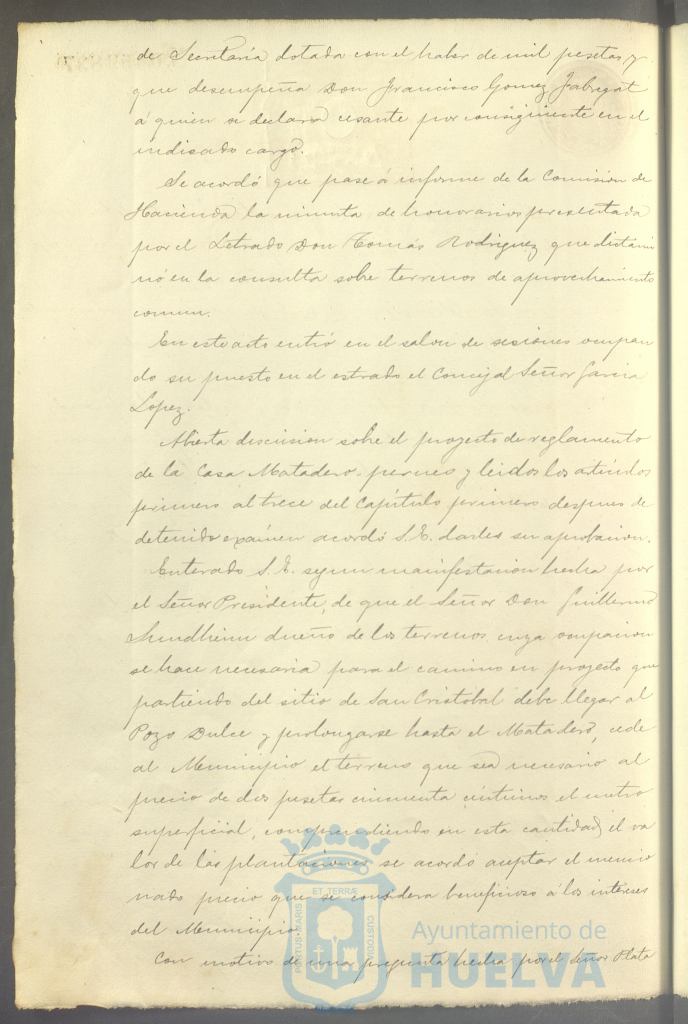 de Secretaría dotada con el haber de mil pesetas y
que desempeña Don Francisco Gomez Fabregat
á quien se declara cesante por consiguiente en el
indicado cargo.
Se acordó que pase á informe de la Comision de
Hacienda la minuta de honorarios presentada
por el Letrado Don Tomás Rodriguez que dictami
nó en la consulta sobre terrenos de aprovechamiento
comun.
En este acto entró en el salon de sesiones ocupan
do su puesto en el estrado el Concejal Señor Garcia
Lopez.
Abierta discusion sobre el proyecto de reglamento
de la Casa Matadero y leidos los artículos
primero al trece del Capítulo primero despues de
detenido exámen acordó S.E. darles su aprobacion.
Enterado S.E. segun manifestacion hecha por
el Señor Presidente, de que el Señor Don Guillermo
Sundheim dueño de los terrenos cuya ocupacion
se hace necesaria para el camino en proyecto que
partiendo del sitio de San Cristobal debe llegar al
Pozo Dulce y prolongarse hasta el Matadero, cede
al Municipio el terreno que sea necesario al
precio de dos pesetas cincuenta céntimos el metro
superficial, comprendiendo en esta cantidad el va
lor de las plantaciones se acordó aceptar el mencio
nado precio que se considera beneficioso á los intereses
del Municipio.
Con motivo de una pregunta hecha por el Señor Plata
PORTUS MARIS ET TERRÆ CUSTODIA
Ayuntamiento de
HUELVA